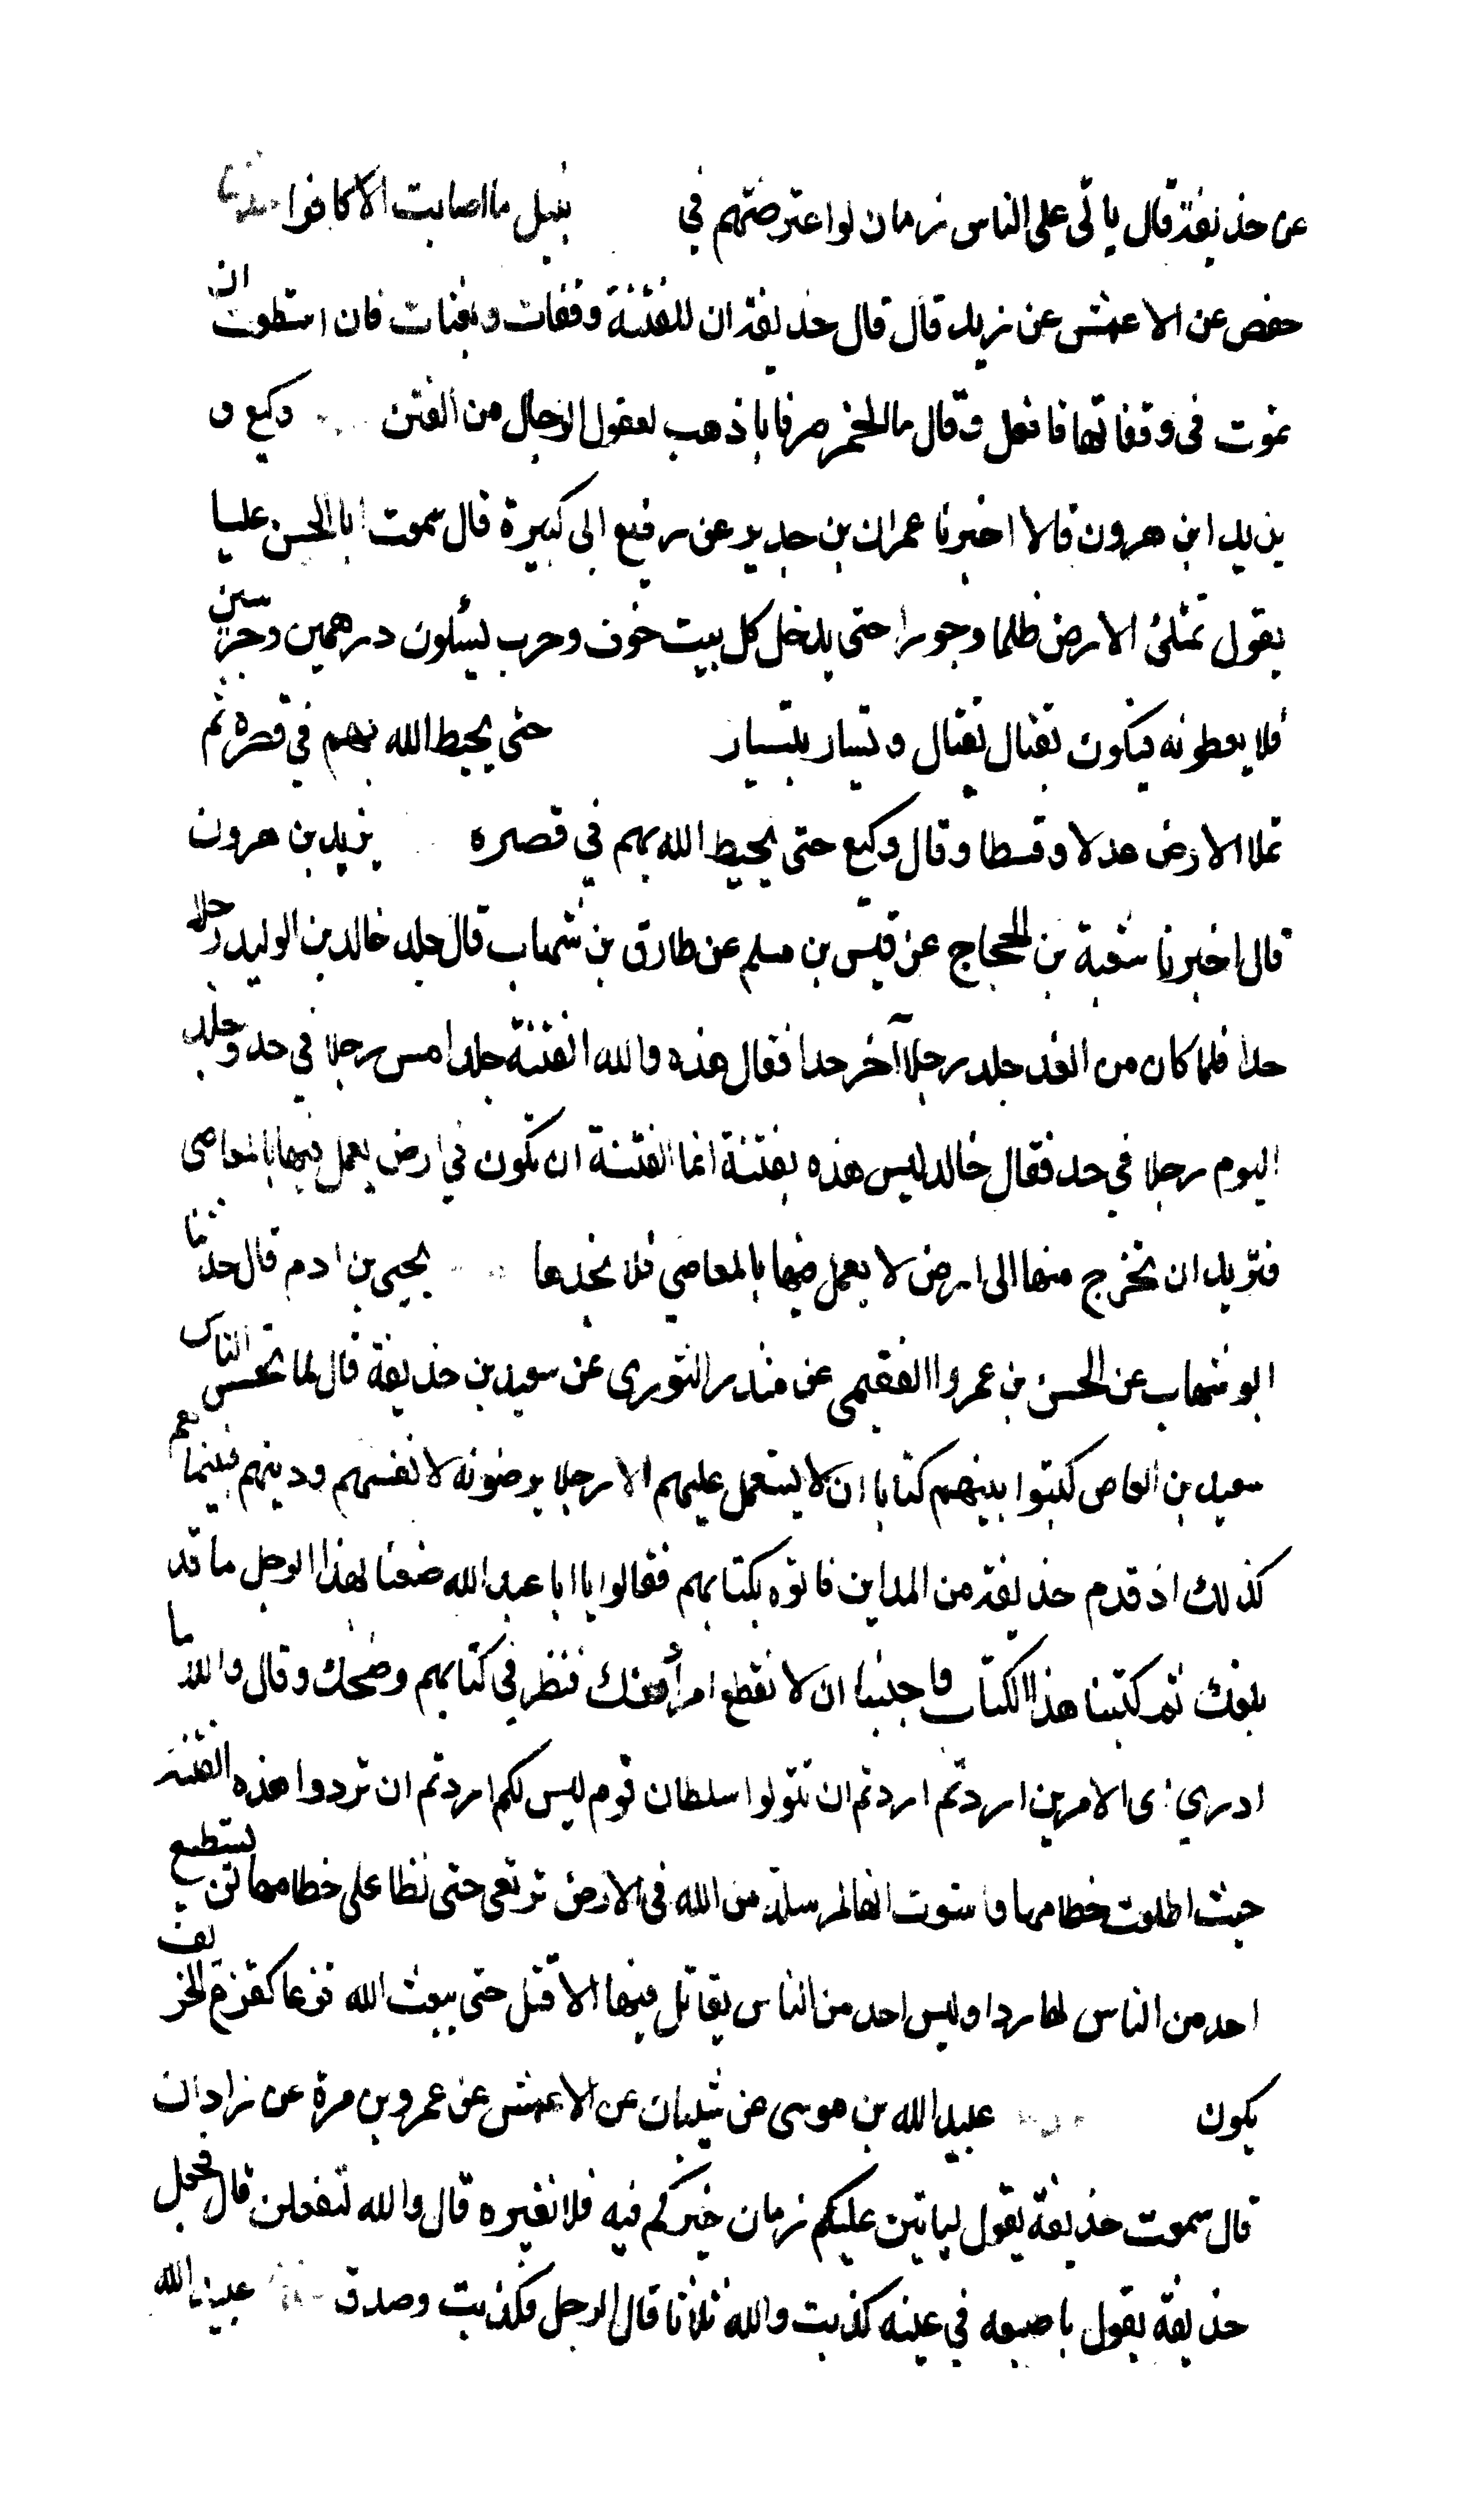 عن حذيفة قال ياتى على الناس زمان لو اعترضتهم في بنبل ما اصابت الا كافرا حدثنا
حفص عن الاعمش عن زيد قال قال حذيفة ان للفتنة وقفات وبغتات فان استطعت ان
تموت فى وقفاتها فافعل وقال ما الخمر صرفا باذهب لعقول الرجال من الفتن وكيع و
يزيد ابن هرون قالا اخبرنا عمران بن حدير عن رفيع ابى كبيرة قال سمعت ابا الحسن عليا
يقول تمتلئ الارض ظلما وجورا حتى يدخل كل بيت خوف وحرب يسئلون درهمين وجريبين
فلا يعطونه فيكون تقتال بقتال وتسيار بتسيار حتى يحيط الله بهم في قصره ثم
تملا الارض عدلا وقسطا وقال وكيع حتى يحيط الله بهم في قصره يزيد بن هرون
قال اخبرنا شعبة بن الحجاج عن قيس بن مسلم عن طارق بن شهاب قال جلد خالد بن الوليد رجلا
حدا فلما كان من الغد جلد رجلا آخر حدا فقال هذه والله الفتنة جلد امس رجلا في حد وجلد
اليوم رجلا في حد فقال خالد ليس هذه بفتنة انما الفتنة ان تكون في ارض يعمل فيها بالمعاصى
فتريد ان تخرج منها الى ارض لا يعمل فيها بالمعاصي فلا تجدها يحيى بن ادم قال حدثنا
ابو شهاب عن الحسن بن عمرو الفقيمى عن منذر الثورى عن سعيد بن حذيفة قال لما تحسر الناس
سعيد بن العاص كتبوا بينهم كتابا ان لا يستعمل عليهم الا رجلا يرضونه لانفسهم ودينهم فبينما هم
كذلك اذ قدم حذيفة من المداين فاتوه بكتابهم فقالوا يا ابا عبد الله صنعنا بهذا الرجل ما قد
بلغك ثم كتبنا هذا الكتاب واجبنا ان لا نقطع امرا دونك فنظر في كتابهم وضحك وقال والله ما
ادري اى الامرين اردتم اردتم ان تتولوا سلطان قوم ليس لكم اردتم ان تردوا هذه الفتنة
حيث اطلعت خطامها واستوت انها لمرسلة من الله فى الارض ترتعى حتى تطا على خطامها لن يستطيع
احد من الناس لها ردا وليس احد من الناس يقاتل فيها الا قتل حتى يبعث الله قزعا كقزع الخريف
يكون عبيد الله بن موسى عن شيبان عن الاعمش عن عمرو بن مرة عن زاذان
قال سمعت حذيفة يقول لياتين عليكم زمان خيركم فيه فلا نغيره قال والله لتفعلن قال فجعل
حذيفة يقول باصبعه في عينه كذبت والله ثلاثا قال الرجل فكذبت وصدق عبيد الله